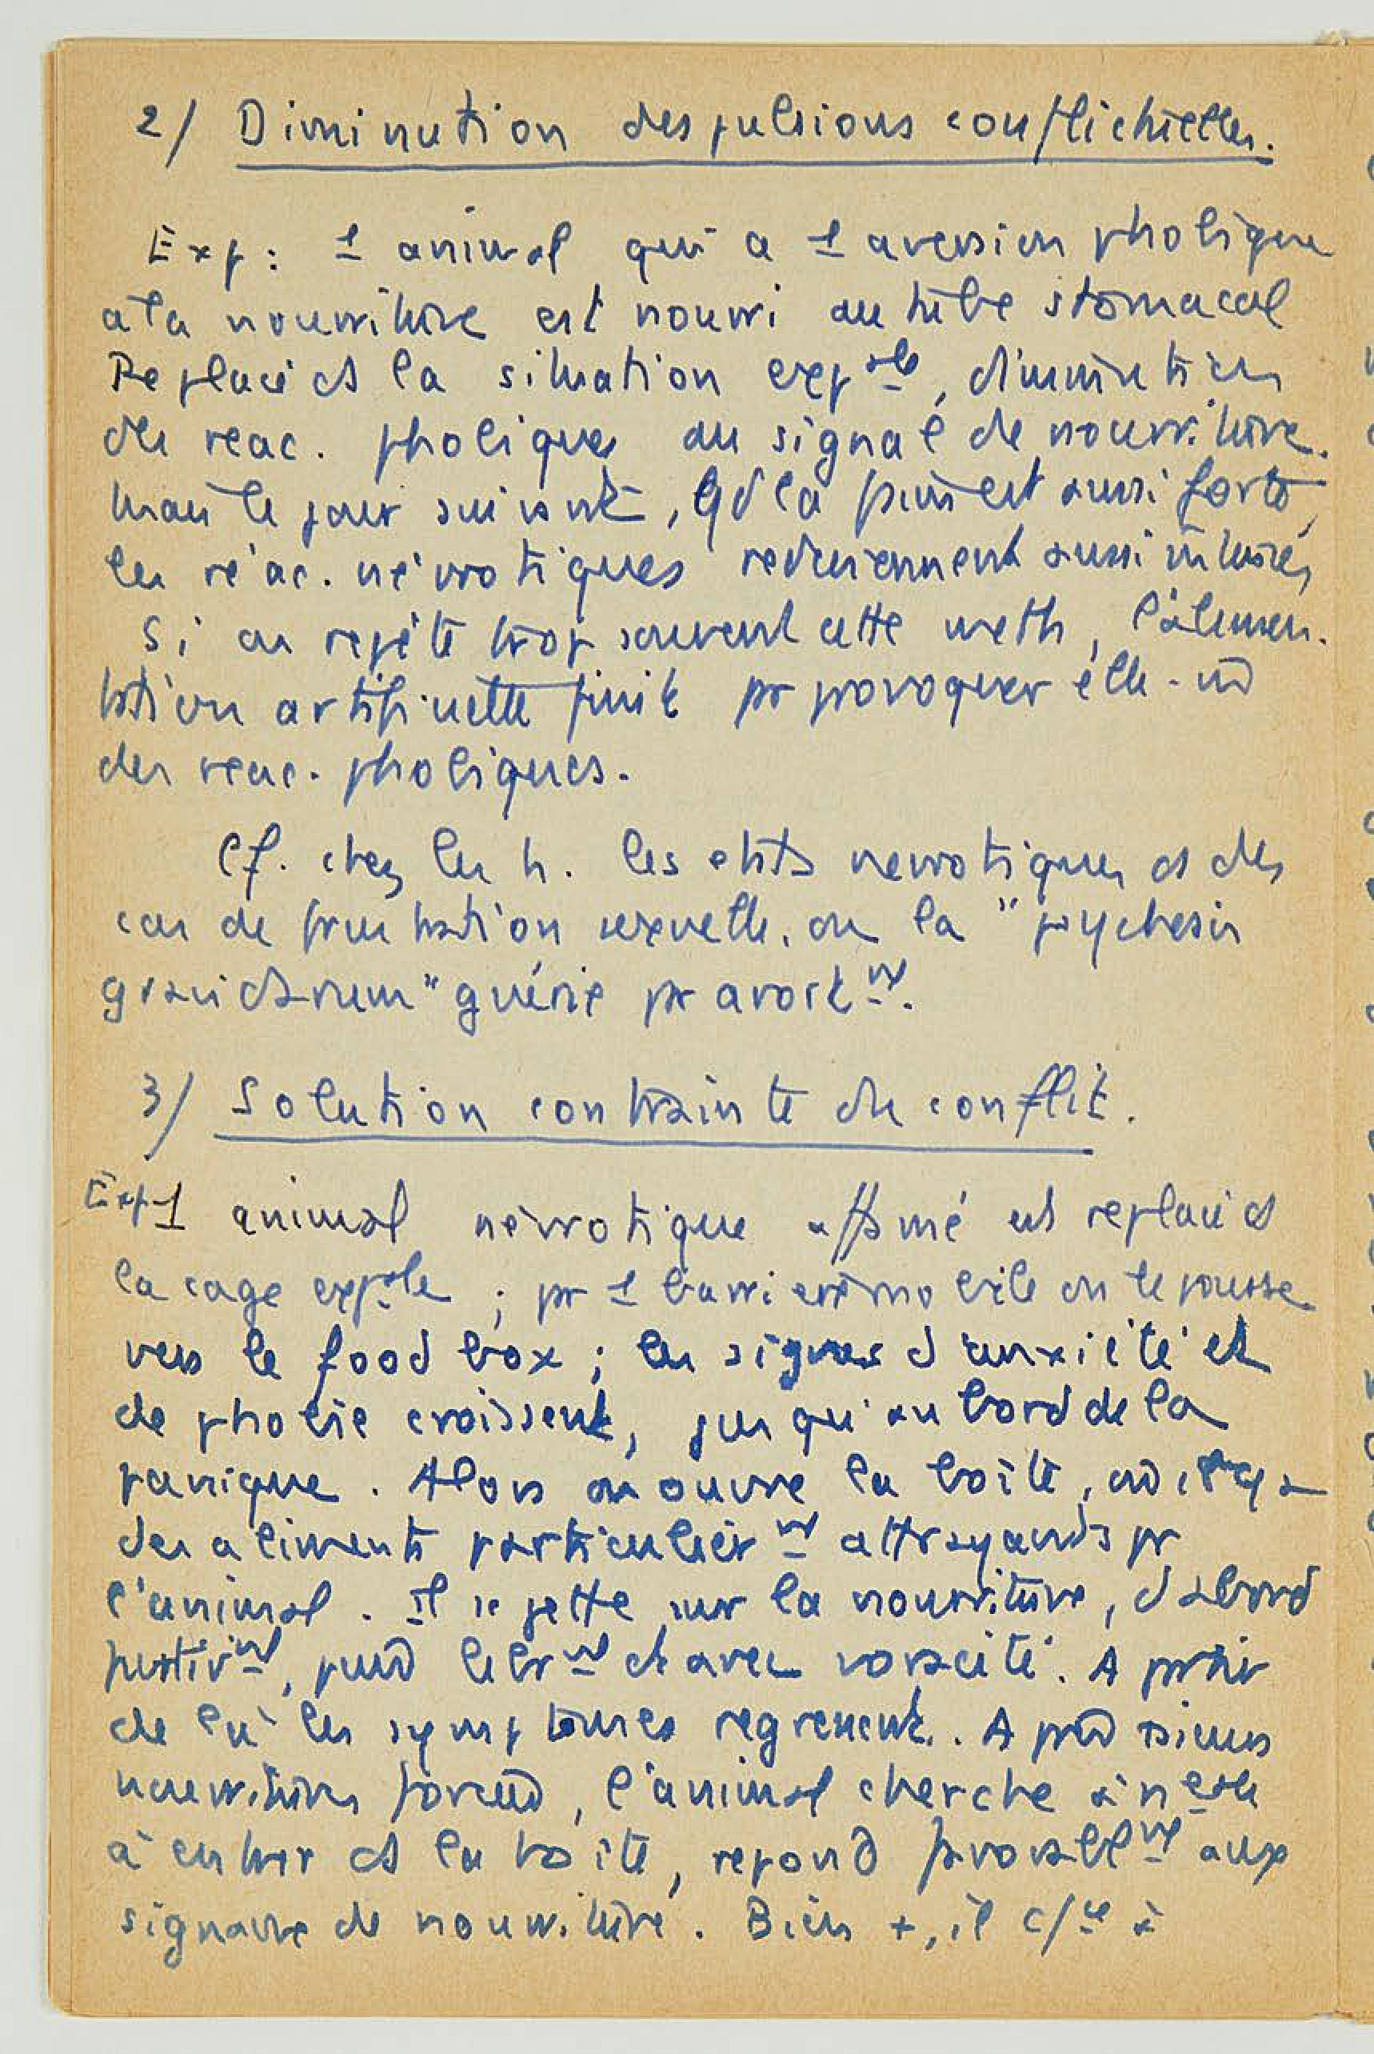 2/ Diminution des pulsions conflictuelles.
Exp : 1 animal qui a 1 aversion phobique
à la nourriture est nourri au tube stomacal
Replacé ds la situation exp ale, diminution
des reac. phobiques au signal de nourriture.
Mais le jour suivant, qd la faim est aussi forte,
les réac. névrotiques redeviennent aussi intenses,
Si on repète trop souvent cette meth, l'alimen-
tation artificielle finit pr provoquer elle-m̂
des reac. phobiques.
Cf. chez les h. les etats nevrotiques ds des
cas de frustration sexuelle. ou la "psychosis
gravidarum" guérie pr avort nt.
3/ Solution contrainte du conflit.
Exp 1 animal névrotique affamé est replacé ds
la cage exp ale ; pr 1 barrière mobile on le pousse
vers le food box ; les signes d'anxiété et
de phobie croissent, jusqu'au bord de la
panique. Alors on ouvre la boîte, où il y a
des aliments particulièr nt attrayants pr
l'animal. Il se jette sur la nourriture, d'abord
furtiv nt, puis libr nt et avec voracité. A partir
de là les symptomes regressent. Après
nourritures forcées, l'animal cherche à
à entrer ds la boîte, repond favorabl nt aux
signaux de nourriture. Bien +, il c/ce à